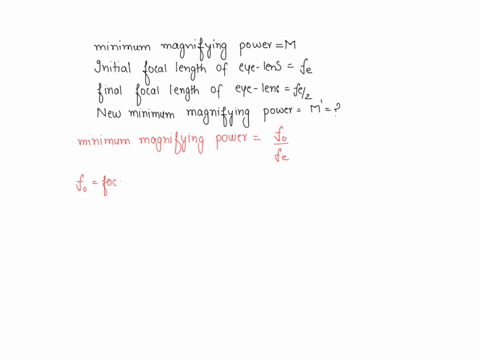 minimum magnifying power = M
Initial focal length of eye-lens = fe
final focal length of eye-lens = fe/2
New minimum magnifying power = M' = ?
minimum magnifying power = fo/fe
fo = foc